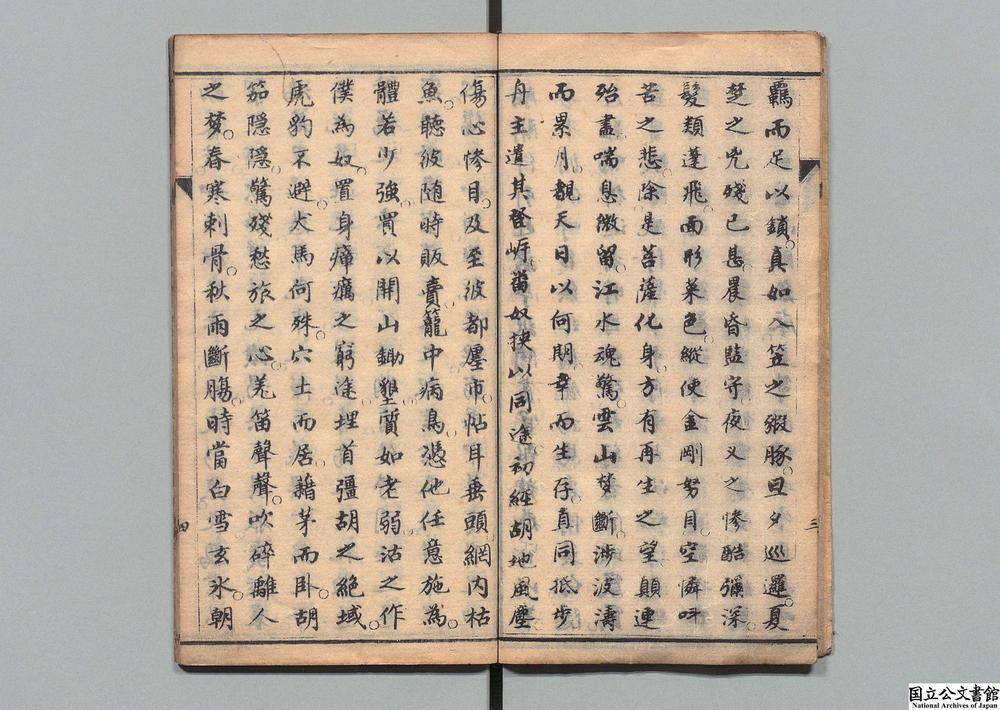 羈而足以鎖真如入笠之豭豚○旦夕巡邏○夏
楚之兇殘已甚○晨昏監守夜乂之慘酷彌深○
髮類蓬飛○面形菜色○縱使金剛努目空憐叫
苦之悲○除是菩薩化身○方有再生之望顛連
殆盡喘息微留○江水魂驚○雲山梦斷○涉波濤
而累月○覩天日以何期○幸而生存○直同抵步
丹主遣其登岸畨奴挾以同途初經胡地風塵
傷心慘目○及至彼都廛市○帖耳垂頭○網内枯
魚○聽彼随時販賣○籠中病鳥○憑他任意施為○
體若少強○買以開山鋤墾○質如老弱沽之作
僕為奴○置身瘴癘之窮途埋首彊胡之絶域○
虎豹不避○犬馬何殊○穴土而居○藉茅而卧○胡
笳隱隱○驚殘愁旅之心○羌笛聲聲○吹碎離人
之梦○春寒刺骨○秋雨斷腸○時當白雪玄氷○朝
三
四
国立公文書館
National Archives of Japan